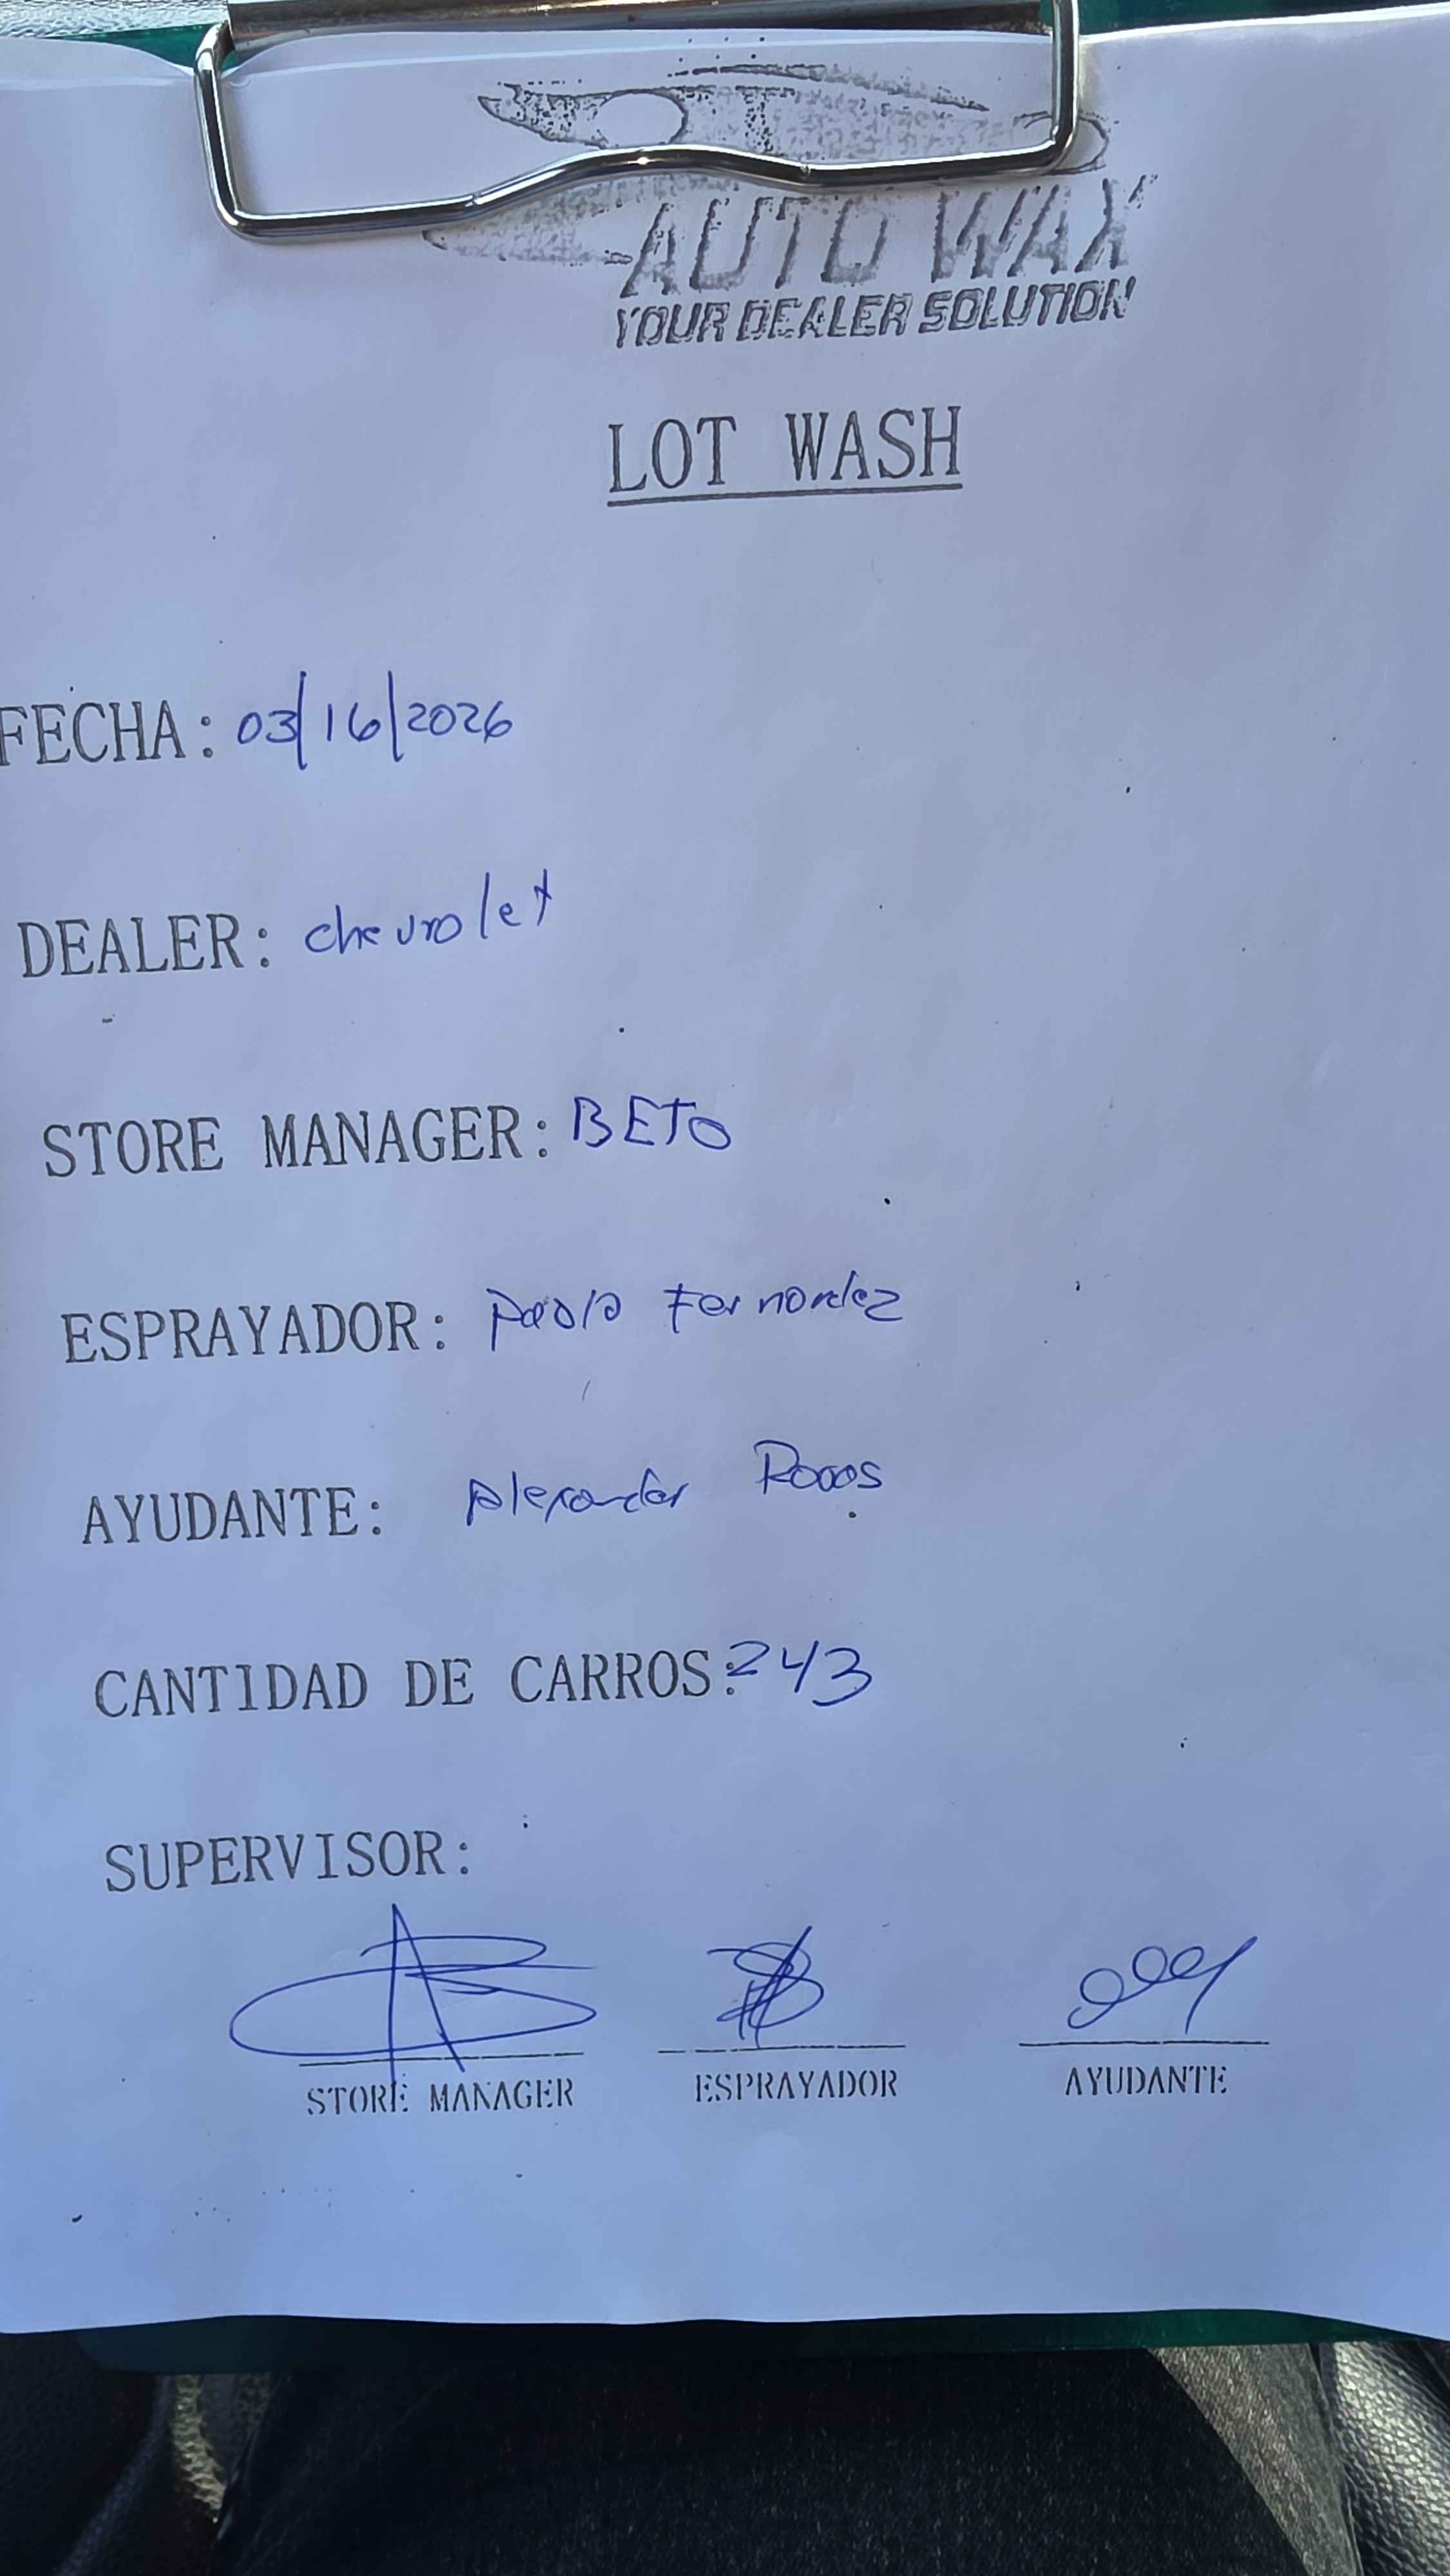 AUTO WAX
YOUR DEALER SOLUTION
LOT WASH
FECHA: 03/16/2026
DEALER: chevrolet
STORE MANAGER: BETO
ESPRAYADOR: Pablo Fernandez
AYUDANTE: Alexander
CANTIDAD DE CARROS: 243
SUPERVISOR:
STORE MANAGER ESPRAYADOR AYUDANTE